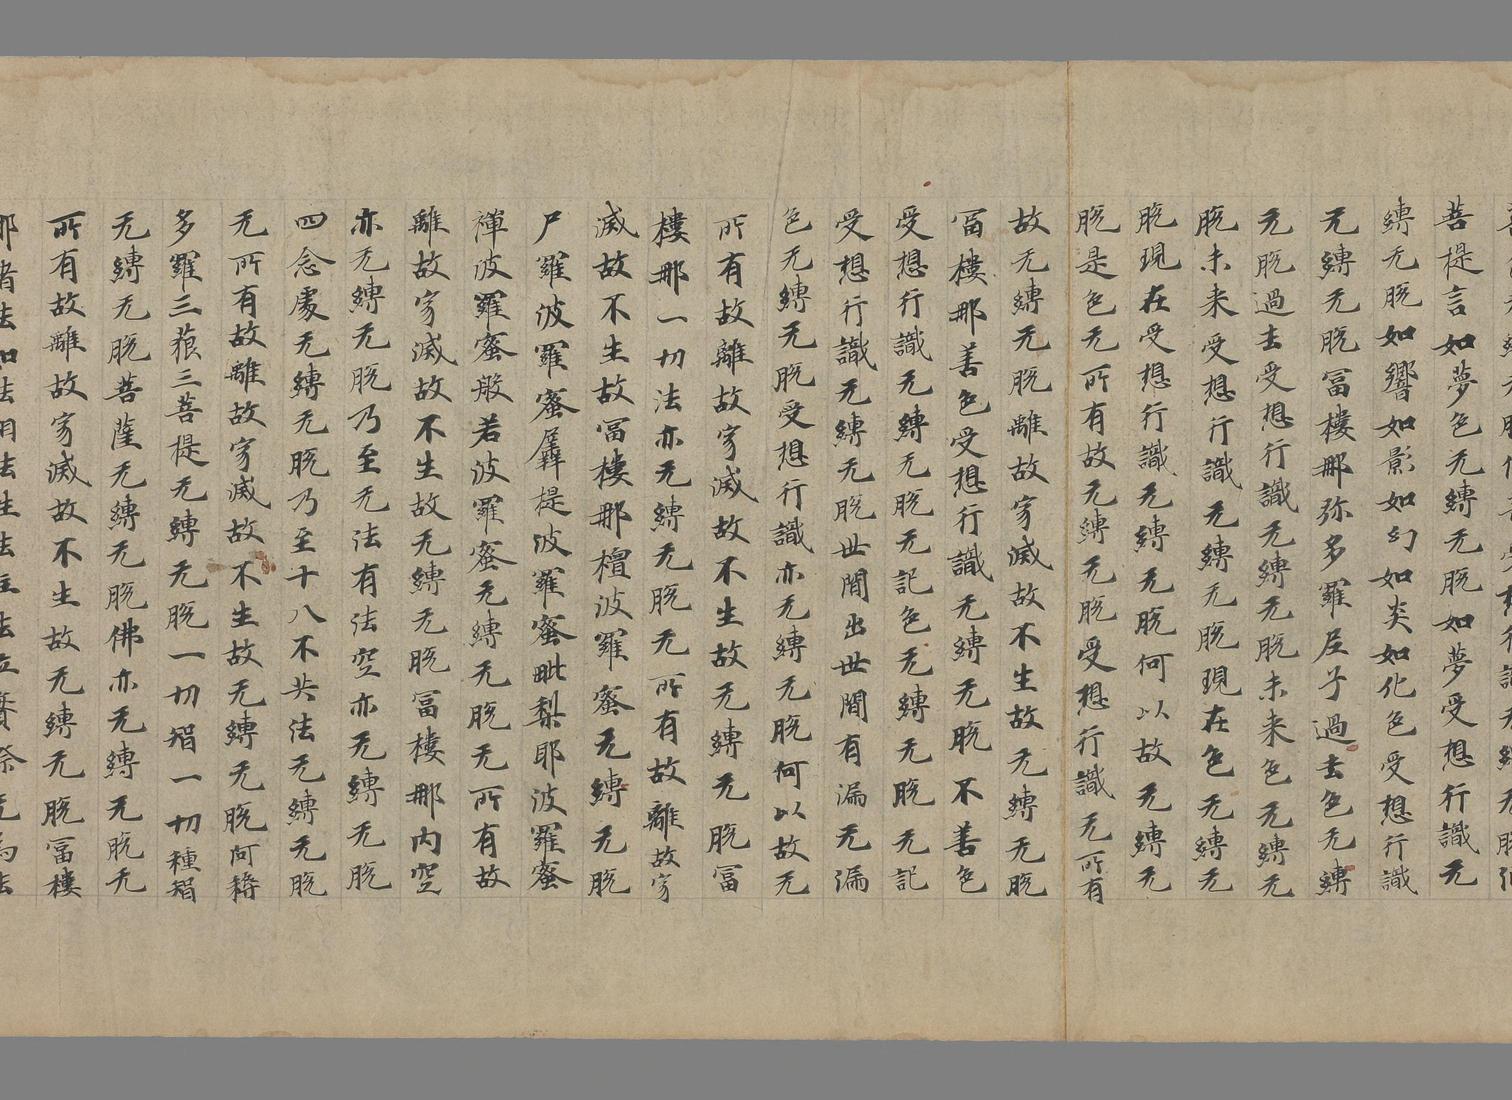 菩提言如夢色无縛无脫如夢受想行識无
縛无脫如響如影如幻如炎如化色受想行識
无縛无脫冨樓那弥多羅尼子過去色无縛
无脫過去受想行識无縛无脫未来色无縛无
脫未来受想行識无縛无脫現在色无縛无
脫現在受想行識无縛无脫何以故无縛无
脫是色无所有故无縛无脫受想行識无所有
故无縛无脫離故寂滅故不生故无縛无脫
冨樓那善色受想行識无縛无脫不善色
受想行識无縛无脫无記色无縛无脫无記
受想行識无縛无脫世間出世間有漏无漏
色无縛无脫受想行識亦无縛无脫何以故无
所有故離故寂滅故不生故无縛无脫冨
樓那一切法亦无縛无脫无所有故離故寂
滅故不生故冨樓那檀波羅蜜无縛无脫
尸羅波羅蜜羼提波羅蜜毗梨耶波羅蜜
禪波羅蜜般若波羅蜜无縛无脫无所有故
離故寂滅故不生故无縛无脫冨樓那内空
亦无縛无脫乃至无法有法空亦无縛无脫
四念處无縛无脫乃至十八不共法无縛无脫
无所有故離故寂滅故不生故无縛无脫阿耨
多羅三藐三菩提无縛无脫一切智一切種智
无縛无脫菩薩无縛无脫佛亦无縛无脫无
所有故離故寂滅故不生故无縛无脫冨樓